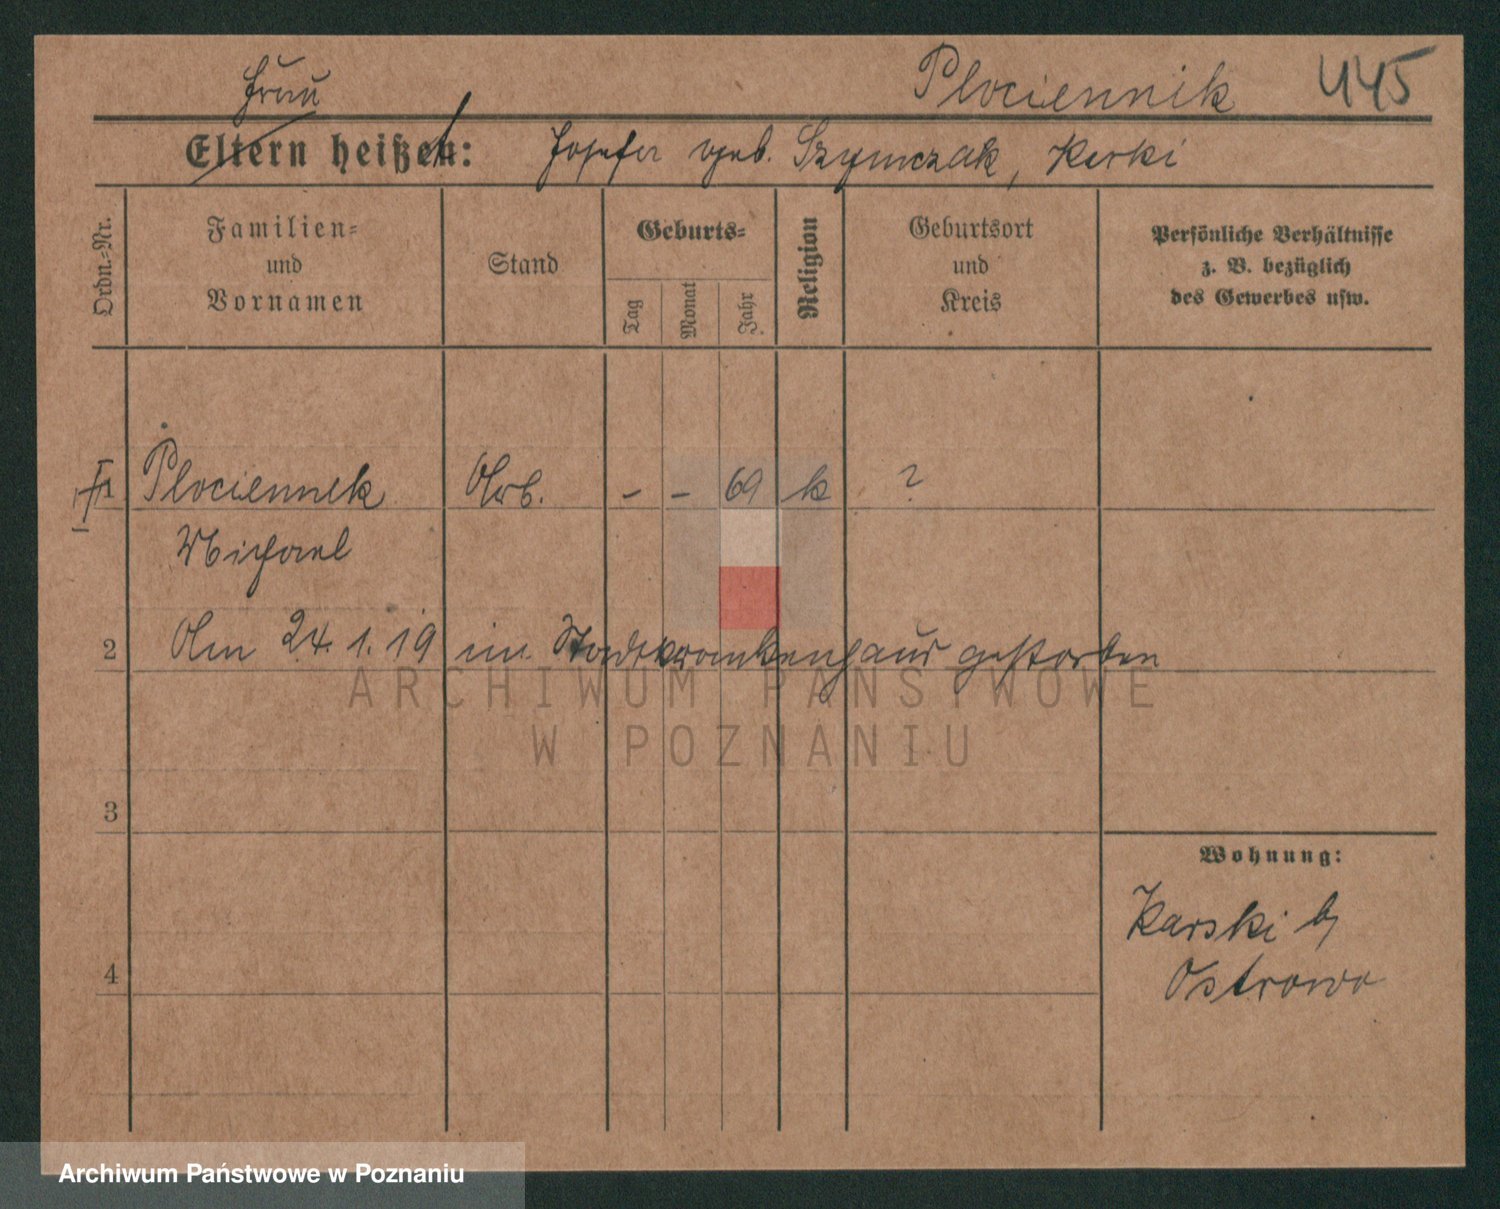 Plociennik 445
Frau
Eltern heißen: Josefa geb. Szymczak, Kerki
Ordn.-Nr.
Familien-
und
Vornamen
Stand
Geburts-
Tag
Monat
Jahr
Religion
Geburtsort
und
Kreis
Persönliche Verhältnisse
z. B. bezüglich
des Gewerbes usw.
1 Plociennik Arb. - - 69 k ?
Michael
2 Am 24.1.19 im Stadtkrankenhaus gestorben
ARCHIWUM PAŃSTWOWE
W POZNANIU
3
Wohnung:
Karski b/
Ostrowo
4
Archiwum Państwowe w Poznaniu